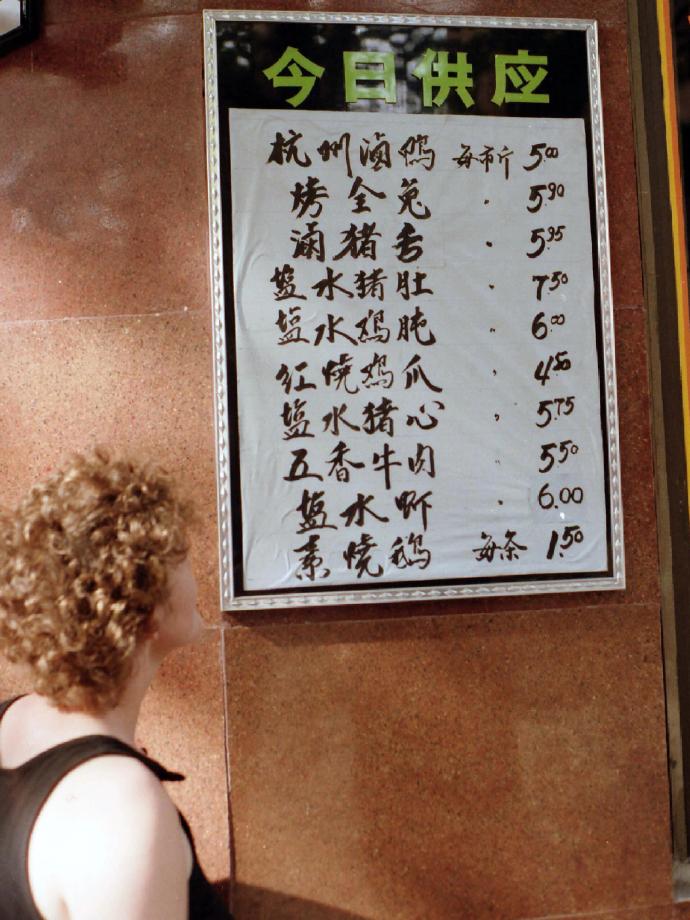 今日供应
杭州滷鸭 每市斤 5.00
烤全兔 〃 5.90
滷猪舌 〃 5.95
盐水猪肚 〃 7.50
盐水鸡肫 〃 6.00
红燒鸡爪 〃 4.50
盐水猪心 〃 5.75
五香牛肉 〃 5.50
盐水虾 〃 6.00
素燒鹅 每条 1.50